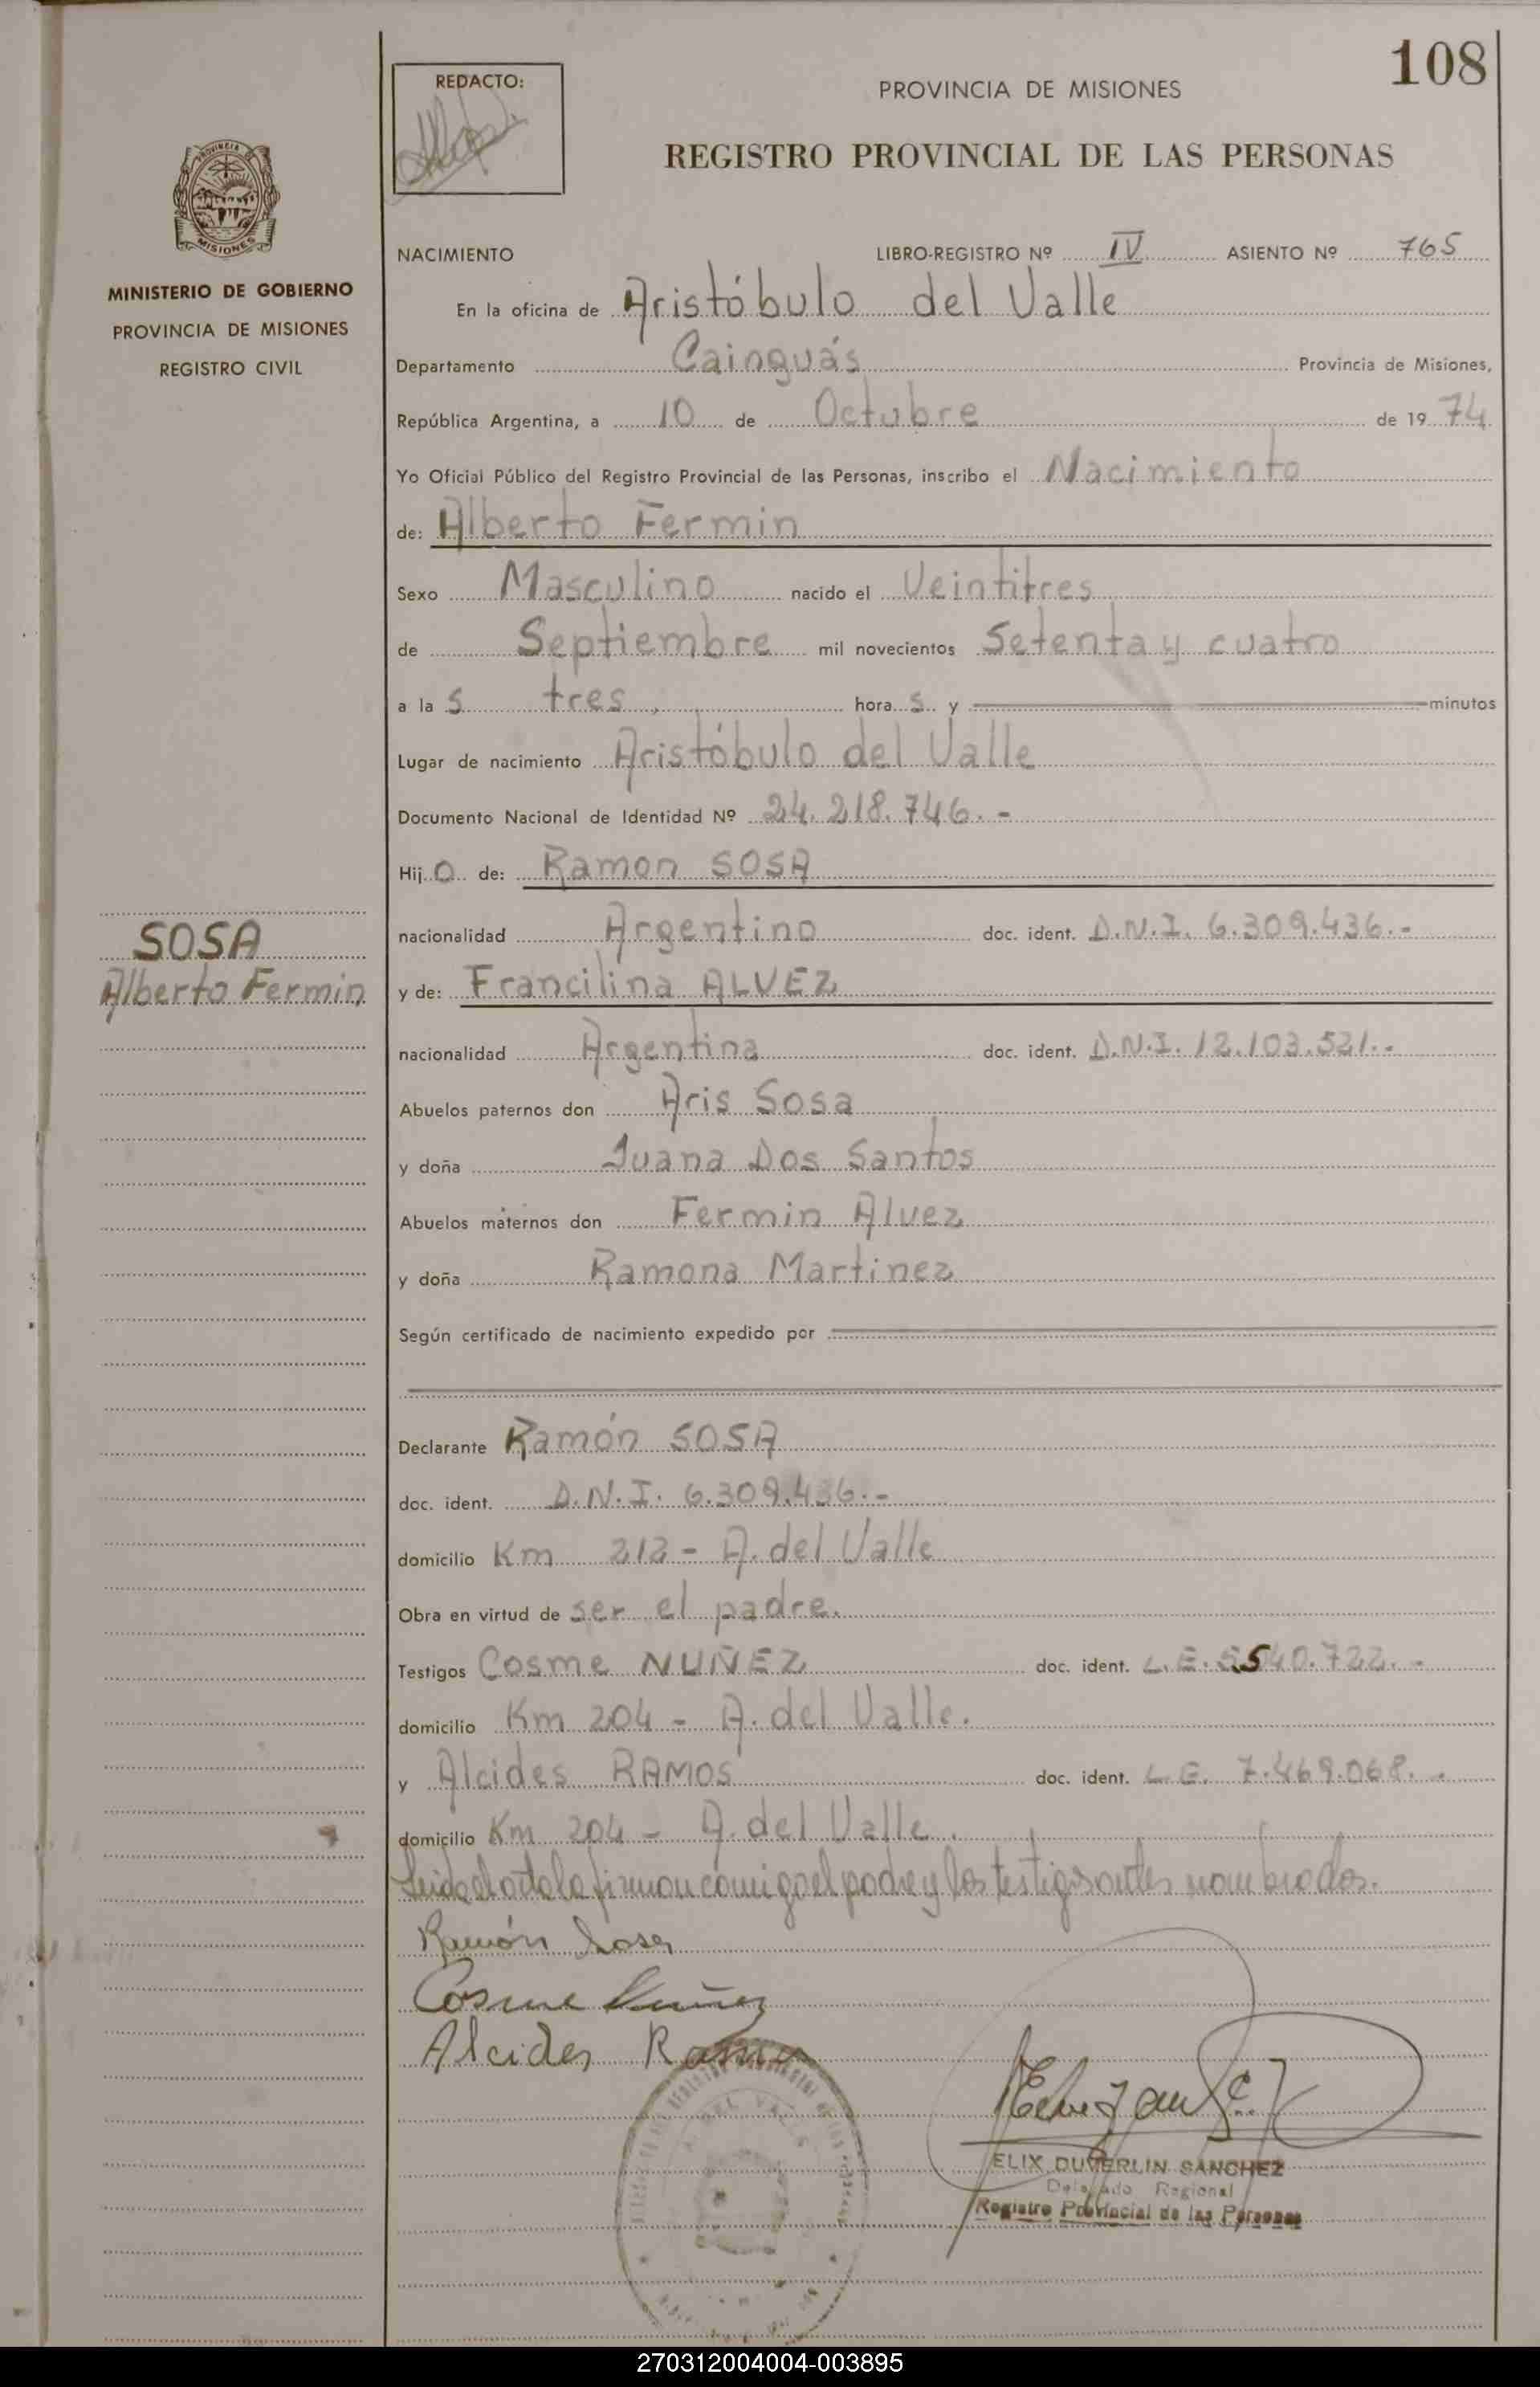 108
REDACTO:
PROVINCIA DE MISIONES
REGISTRO PROVINCIAL DE LAS PERSONAS
PROVINCIA
MISIONES
MINISTERIO DE GOBIERNO
PROVINCIA DE MISIONES
REGISTRO CIVIL
NACIMIENTO LIBRO-REGISTRO Nº IV ASIENTO Nº 765
En la oficina de Aristóbulo del Valle
Departamento Cainguás Provincia de Misiones,
República Argentina, a 10 de Octubre de 19 74
Yo Oficial Público del Registro Provincial de las Personas, inscribo el Nacimiento
de: Alberto Fermin
Sexo Masculino nacido el Veintitres
de Septiembre mil novecientos Setenta y cuatro
a la s tres hora s y minutos
Lugar de nacimiento Aristóbulo del Valle
Documento Nacional de Identidad Nº 24.218.746.-
Hij o de: Ramon SOSA
nacionalidad Argentino doc. ident. D.N.I. 6.309.436.-
SOSA
Alberto Fermin
y de: Francilina ALVEZ
nacionalidad Argentina doc. ident. D.N.I. 12.103.521.-
Abuelos paternos don Aris Sosa
y doña Juana Dos Santos
Abuelos maternos don Fermin Alvez
y doña Ramona Martinez
Según certificado de nacimiento expedido por
Declarante Ramón SOSA
doc. ident. D.N.I. 6.309.436.-
domicilio Km 212 - A. del Valle
Obra en virtud de ser el padre.
Testigos Cosme NUÑEZ doc. ident. L.E. 5540.722.-
domicilio Km 204 - A. del Valle.
y Alcides RAMOS doc. ident. L.E. 7.469.068.-
domicilio Km 204 - A. del Valle.
Leida el acta la firman comigo el padre y los testigos antes nombrados.
Ramón Sosa
Cosme Nuñez
Alcides Ramos
DEL VALLE
ELIX DUVERLIN SANCHEZ
Delegado Regional
Registro Provincial de las Personas
270312004004-003895